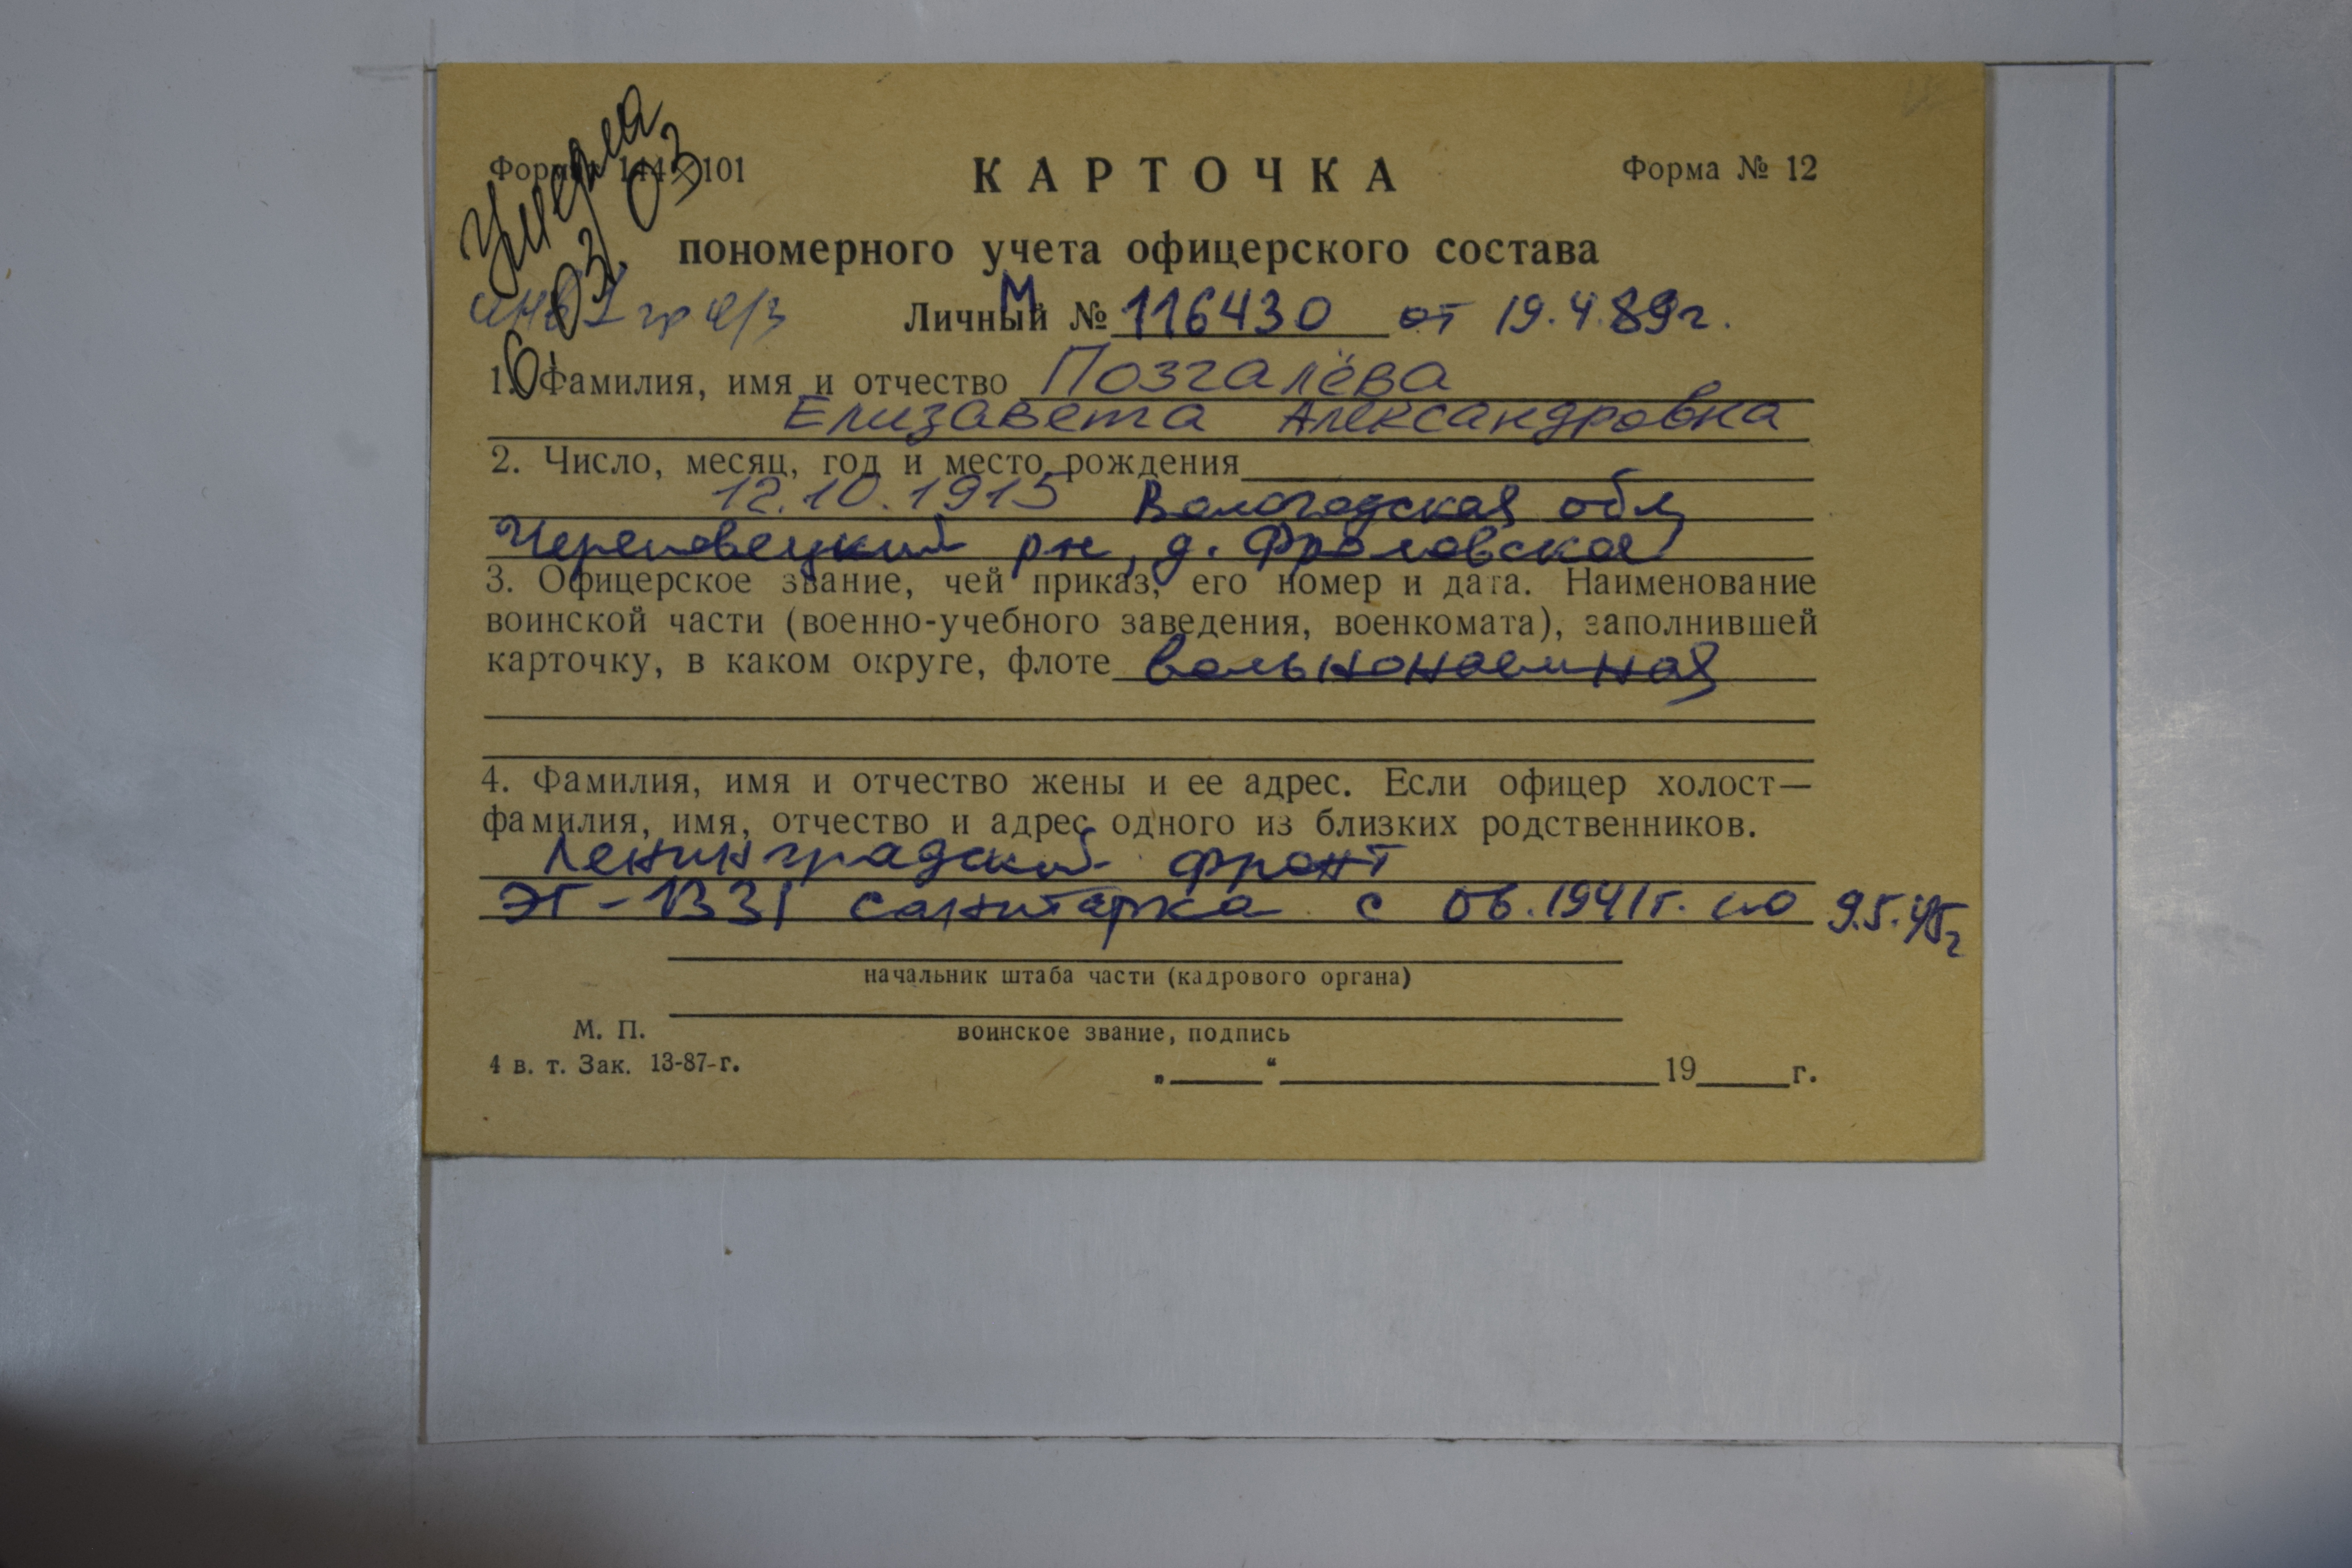 Умерла
6 03 03
Форма 144×101
КАРТОЧКА
Форма № 12
пономерного учета офицерского состава
инв I гр
Личный М № 116430 от 19.4.89г.
1. Фамилия, имя и отчество Позгалёва
Елизавета Александровна
2. Число, месяц, год и место рождения
12.10.1915 Вологодская обл,
Череповецкий рн, д. Фроловская
3. Офицерское звание, чей приказ, его номер и дата. Наименование
воинской части (военно-учебного заведения, военкомата), заполнившей
карточку, в каком округе, флоте вольнонаемная
4. Фамилия, имя и отчество жены и ее адрес. Если офицер холост—
фамилия, имя, отчество и адрес одного из близких родственников.
Ленинградский фронт
ЭГ-1331 санитарка с 06.1941г. по 9.5.45г
начальник штаба части (кадрового органа)
М. П.
воинское звание, подпись
4 в. т. Зак. 13-87-г.
„____“ ____________ 19____г.